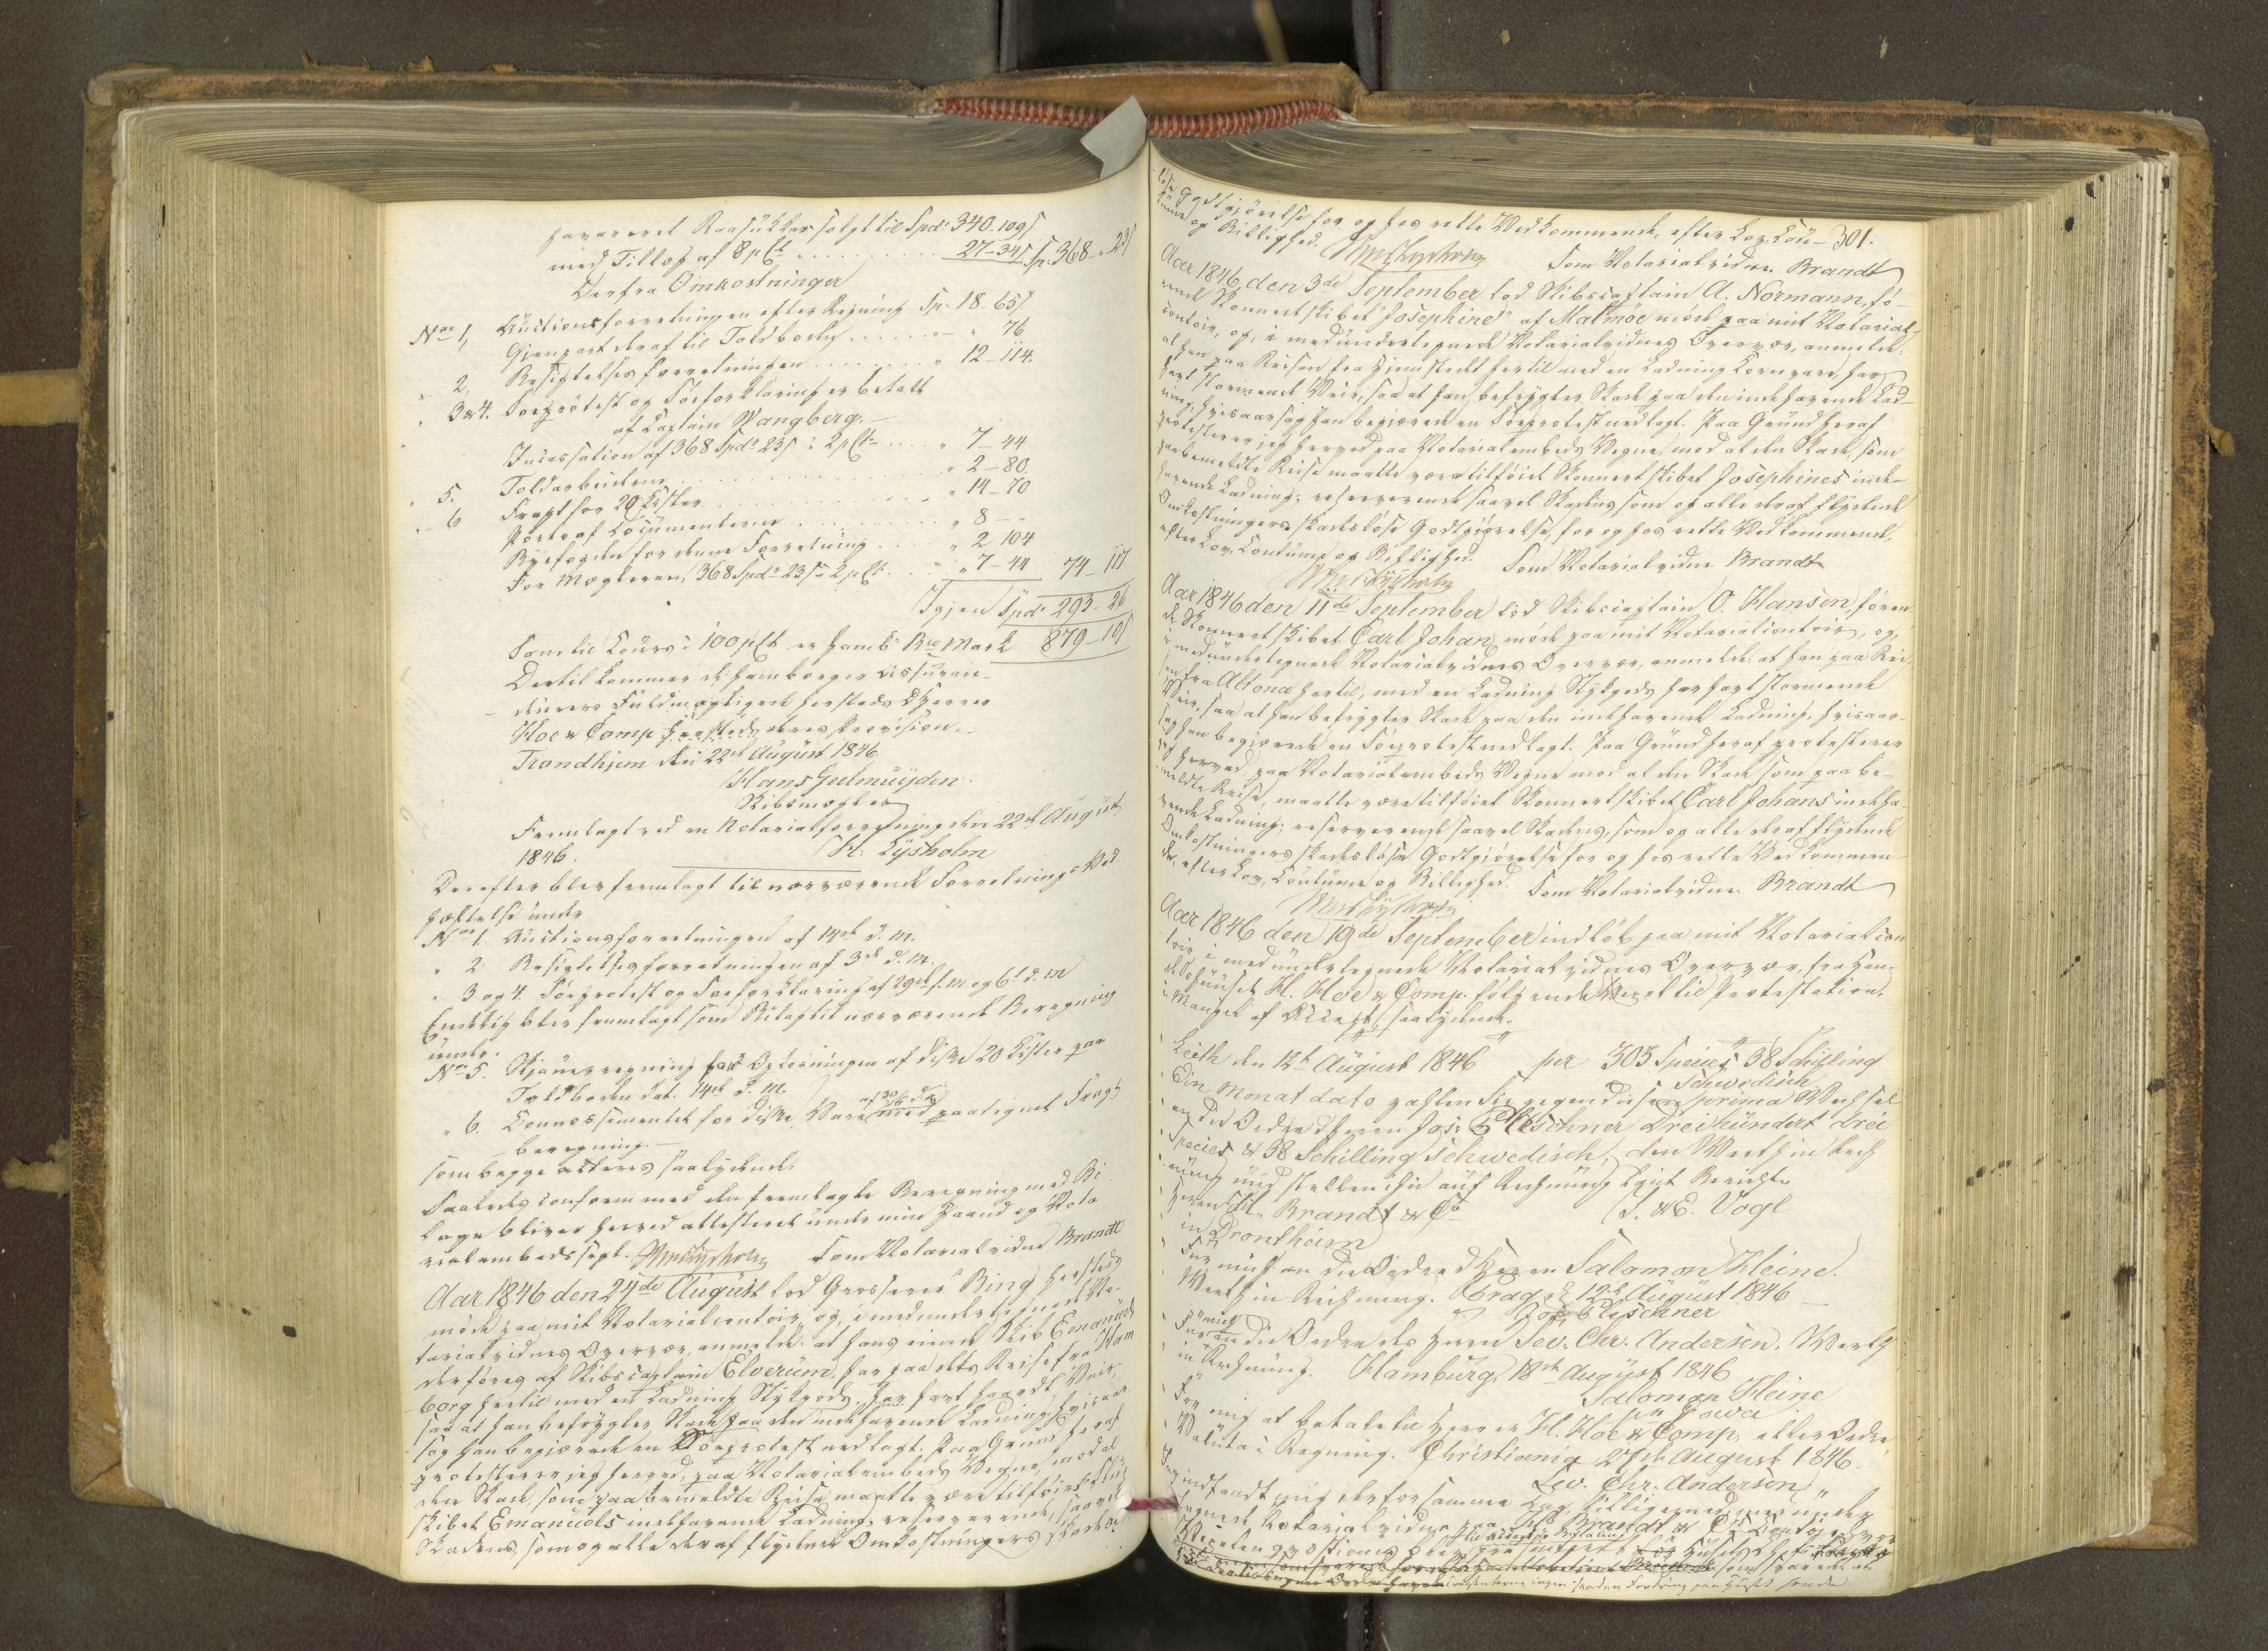 havareret Raasukker solgt til Spd. 340. 109 s
med Tillæg af 8 p Ct. . . . . . . . . 27-34 s Sp. 368 - 23 s
Derfra Omkostninger
No 1, Auctionsforretningen efter Regning Sp. 18-65 s
Gjenpart deraf til Toldboden . . . . . . - " 76
" 2, Besigtelses forretningen . . . . . . . " 12-114.
" 3 & 4. Søeprotest og Søeforklaring er betalt
af Captain Wangberg. —
Incassation af 368 Spd. 23 s à 2 p Ct. . . . . " 7-44
Toldarbeiderne . . . . . . . . . . " 2-80.
" 5. Fragt for 20 Kister . . . . . . . . " 14-70
" 6 Porto af Documenterne . . . . . . . " 8- "
Byefogden for denne Forretning . . . . " 2 104
For Mægleren, 368 Spd. 23 s à 2 p Ct. . . . " 7-44 74-117
Igjen Spd. 293-26
Som til Cours à 100 p Ct er Hamb. Bco Mark 879-10 s
Dertil kommer de Hamborger Assuran-
deurers Fuldmægtigede hersteds DHerrer
Hoe & Comp hersteds deres Provision.
Trondhjem den 22de August 1846
Hans Geelmuyden
Skibsmægler
Fremlagt ved en Notarialforretning den 22de August
1846. H. Lysholm
Derefter blev fremlagt til nærværende Forretnings Ved
hæftelse under
No 1. Auctionsforretningen af 14de d. M.
" 2 Besigtelsesforretningen af 3de d. M.
" 3 og 4. Søeprotest og Søeforklaring af 29de f. M og 6te d. M
Endelig blev fremlagt som Bilag til nærværende Beregning
under.
No 5. Skjønsregning for Oplosningen af disse 20 Kister paa
Toldboden dat. 14de d. M.
" 6. Connossementet for disse Vare med paategnet Fragt
beregning. —
som begge acteres saalydende
Saaledes conform med den fremlagte Beregning med Bi
lage bliver herved attesteret under min Haand og Nota
rialembedssegl. HLysholm Som Notarialvidne Brandt
Aar 1846 den 24de August lod Grosserer Bing hersteds
møde paa mit Notarialcontoir og, i medundertegnede No-
tarialvidnes Overvær, anmelde: at hans eiende Skib Emanuel
der føres af Skibscaptain Elverum, har paa dets Reise fra Ham
borg hertil med en Ladning Stykgods, har havt haardt Veir,
saa at han befrygter Skade paa den indehavende Ladning, hvisaar-
sag han begjærede en Søeprotest nedlagt. Paa Grund heraf
protesterer jeg herved, paa Notarialembeds Vegne, mod al
den Skade, som paa bemeldte Reise maatte være tilføiet
Skibet Emanuels indehavende Ladning, reserverende saavel
Skadens, som og alle deraf flydende Omkostningers skades-
løse Godtgjørelse for og hos rette Vedkommende, efter Lov, Cou- 301.
tume og Billighed. HLysholm Som Notarialvidne Brandt
Aar 1846, den 3de September lod Skibscaptain A. Normann, fø-
rende Skonnertskibet "Josephine" af Malmøe møde paa mit Notarial-
contoir, og, i medundertegnede Notarialvidnes Overvær, anmelde:
at han paa Reisen fra Hjemstedet hertil med en Ladning Kornvare, har
havt stormende Veir, saa at han befrygter Skade paa den indehavende Lad-
ning, hvisaarsag han begjærede en Søeprotest nedlagt. Paa Grund heraf
protesterer jeg herved paa Notarialembeds Vegne, mod al den Skade, som
paa bemeldte Reise maatte være tilføiet Skonnertskibet Josephines inde-
havende Ladning; reserverende saavel Skadens som og alle deraf flydende
Omkostningers skadesløse Godtgjørelse, for og hos rette Vedkommende,
efter Lov, Coutume og Billighed. Som Notarialvidne Brandt
HLysholm
Aar 1846 den 11de September lod Skibscaptain O. Hansen, føren
de Skonnertskibet Carl Johan, møde paa mit Notarialcontoir, og,
i medundertegnede Notarialvidnes Overvær, anmelde: at han paa Rei
sen fra Altona hertil, med en Ladning Stykgods har havt stormende
Veir, saa at han befrygter Skade paa den indehavende Ladning, hvisaar-
sag han begjærede en Søeprotest nedlagt. Paa Grund heraf protesterer
jeg herved paa Notarialembeds Vegne mod al den Skade, som paa be-
meldte Reise, maatte være tilføiet Skonnertskibet Carl Johans indeha-
vende Ladning; reserverende saavel Skadens, som og alle deraf flydende
Omkostningers skadesløse Godtgjørelse for og hos rette Vedkommen-
de, efter Lov, Coutume og Billighed. Som Notarialvidne Brandt
HLysholm
Aar 1846 den 19de September indløb paa mit Notarialcon
toir i medundertegnede Notarialvidnes Overvær, fra Han-
delshuuset H. Hoe & Comp. følgende Vexel til Protestation,
i Mangel af Accept, saalydende.
Leith den 12t August 1846 per 303 Species 38 Schilling
Schwedisch
Ein Monat dato zahlen Sie gegen diesen prima Wechsel
an die Ordre Herrn Jos: Eleschner Dreihundert drei
Species & 38 Schilling Schwedisch, den Werth in Rech
nung und stellen ihn auf Rechnung laut Bericht.
Herren H. Brandt & Co J. & E. Vogl
in Drontheim
Für mich an die Ordre Herrn Salomon Heine.
Werth in Rechnung. Prag d 12t August 1846
Jos. Eleschner
Für mich an die Ordre des Herrn Lev. Chr. Andersen. Werth
in Rechnung. Hamburg, 18de August 1846
Salomon Heine
For mig at betale til Herrer H. Hoe & Comp. eller Ordre
Valuta i Regning. Christiania 27de August 1846.
Lev. Chr. Andersen
Jeg indfandt mig derfor samme Dag tillige med medunder
tegnede Notarialvidne paa H. Brandt & Co Contoir